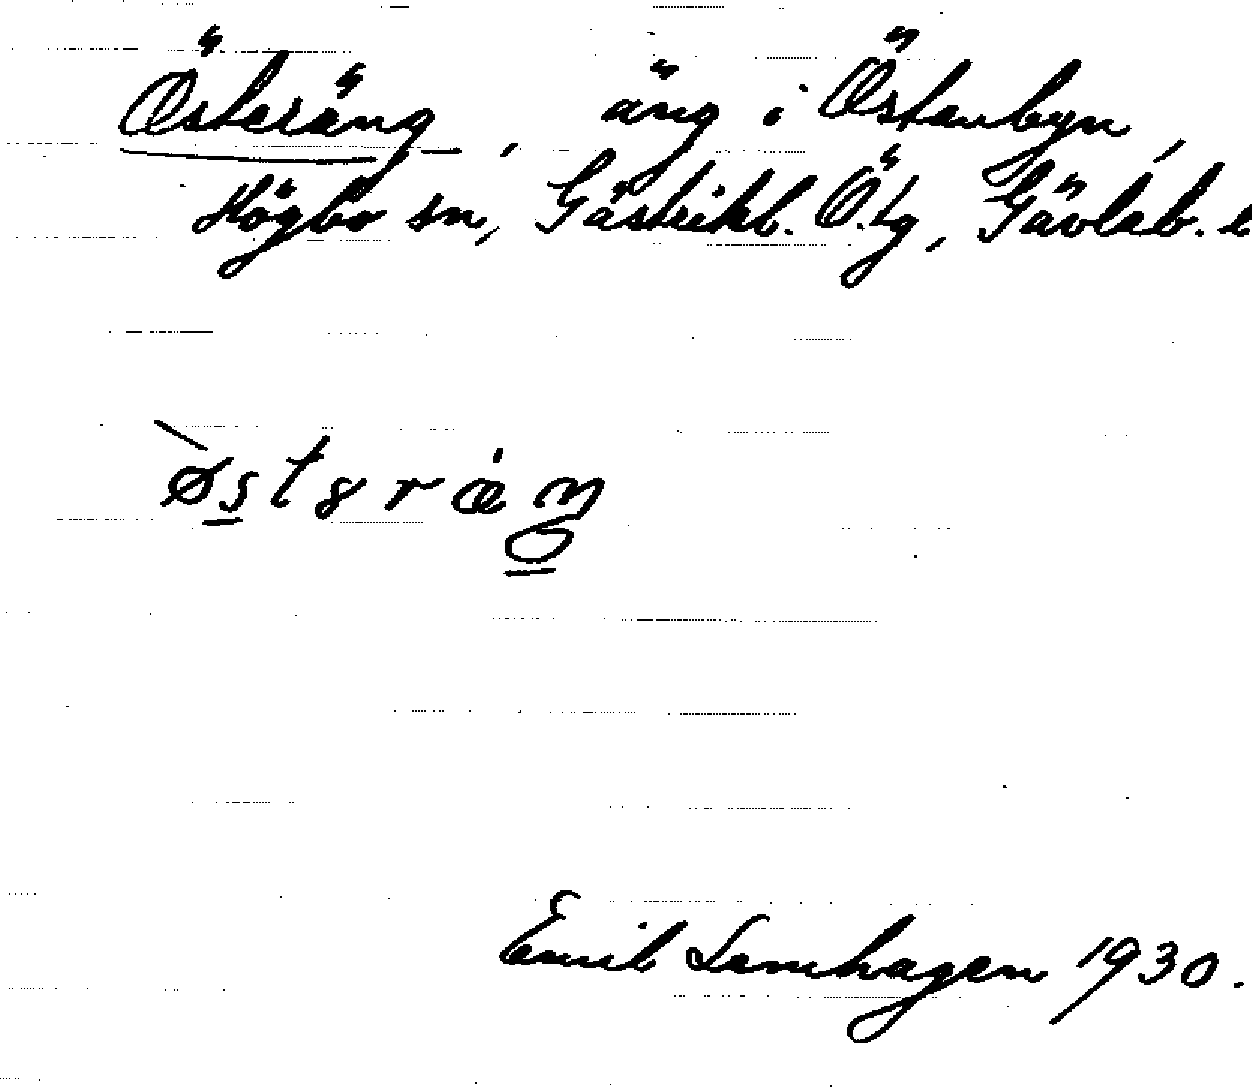 Österäng, äng i Östanbyn,
Högbo sn, Gästrikl. Ö. tg, Gävleb. l
østəræŋ
Emil Lamhagen 1930.